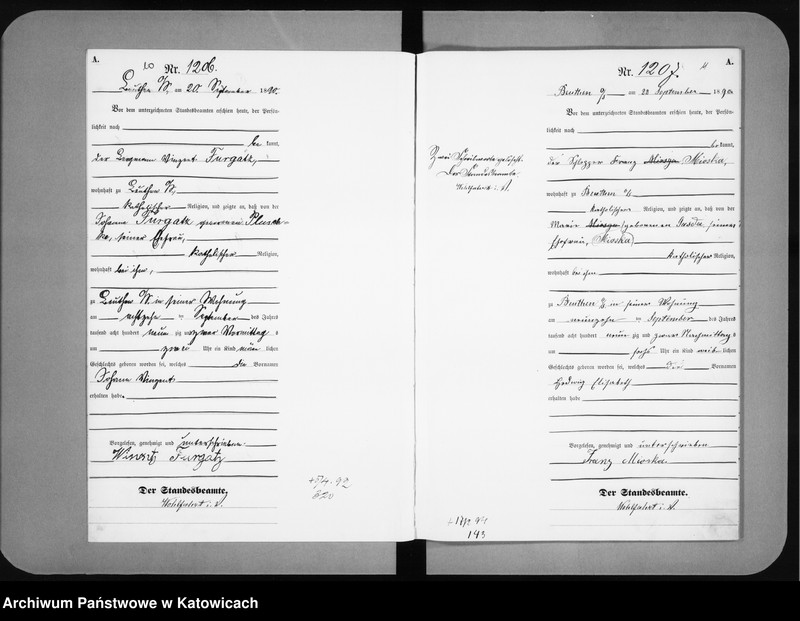 A.
Nr. 1206.
Beuthen O/S, am 20. September 1890.
Vor dem unterzeichneten Standesbeamten erschien heute, der Persön-
lichkeit nach
be kannt,
der Bergmann Vinzent Furgatz,
wohnhaft zu Beuthen O/S,
katholischer Religion, und zeigte an, daß von der
Johanna Furgatz geborenen
seiner Ehefrau,
katholischer Religion,
wohnhaft bei ihm,
zu Beuthen O/S. in seiner Wohnung
am achtzehn ten September des Jahres
tausend acht hundert neun zig und zwar Vormittag s
um zwei Uhr ein Kind männ lichen
Geschlechts geboren worden sei, welches die Vornamen
Johann Vinzent
erhalten habe.
Vorgelesen, genehmigt und unterschrieben
Furgatz
Der Standesbeamte,
Wohlfahrt i. V.
A.
Nr. 1207.
Beuthen O/S am 20 September 1890
Vor dem unterzeichneten Standesbeamten erschien heute, der Persön-
lichkeit nach
bekannt,
der Franz Mioska,
wohnhaft zu Beuthen O/S
katholischer Religion, und zeigte an, daß von der
Marie geborenen seiner
Ehefrau, Mioska
katholischer Religion,
wohnhaft bei ihm
zu Beuthen O/S in seiner Wohnung
am neunzehn ten September des Jahres
tausend acht hundert neun zig und zwar Nachmittag s
um sechs Uhr ein Kind weib lichen
Geschlechts geboren worden sei, welches die Vornamen
Hedwig Elisabeth
erhalten habe
Vorgelesen, genehmigt und unterschrieben
Franz Mioska
Der Standesbeamte.
Wohlfahrt i. V.
Der Standesbeamte
Wohlfahrt i. V.
193
Archiwum Państwowe w Katowicach